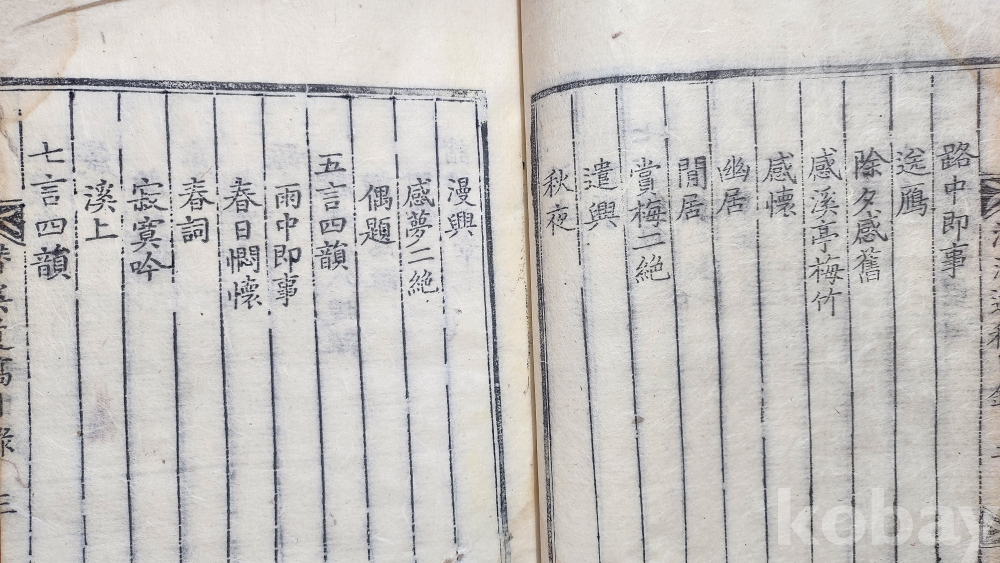 路中即事
送鴈
除夕感舊
感溪亭梅竹
感懷
幽居
閒居
賞梅二絶
遣興
秋夜
漫興
感夢二絶
偶題
五言四韻
雨中即事
春日憫懷
春詞
寂寞吟
溪上
七言四韻
kobay